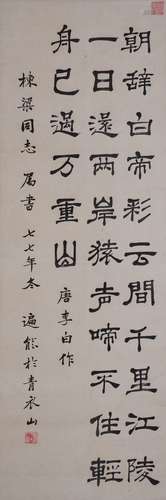 朝辞白帝彩云間千里江陵
一日還两岸猿声啼不住輕
身已過万重山
唐李白作
棟梁同志属書七七年冬遍能於青衣山